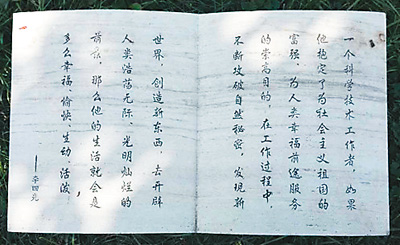 一个科学技术工作者，如果
他抱定了为社会主义祖国的
富强、为人类幸福前途服务
的崇高目的，在工作过程中，
不断攻破自然秘密，发现新
世界，创造新东西，去开辟
人类浩荡无际、光明灿烂的
前京，那么他的生活就会是
多么幸福、愉快、生动、活泼！
——李四光